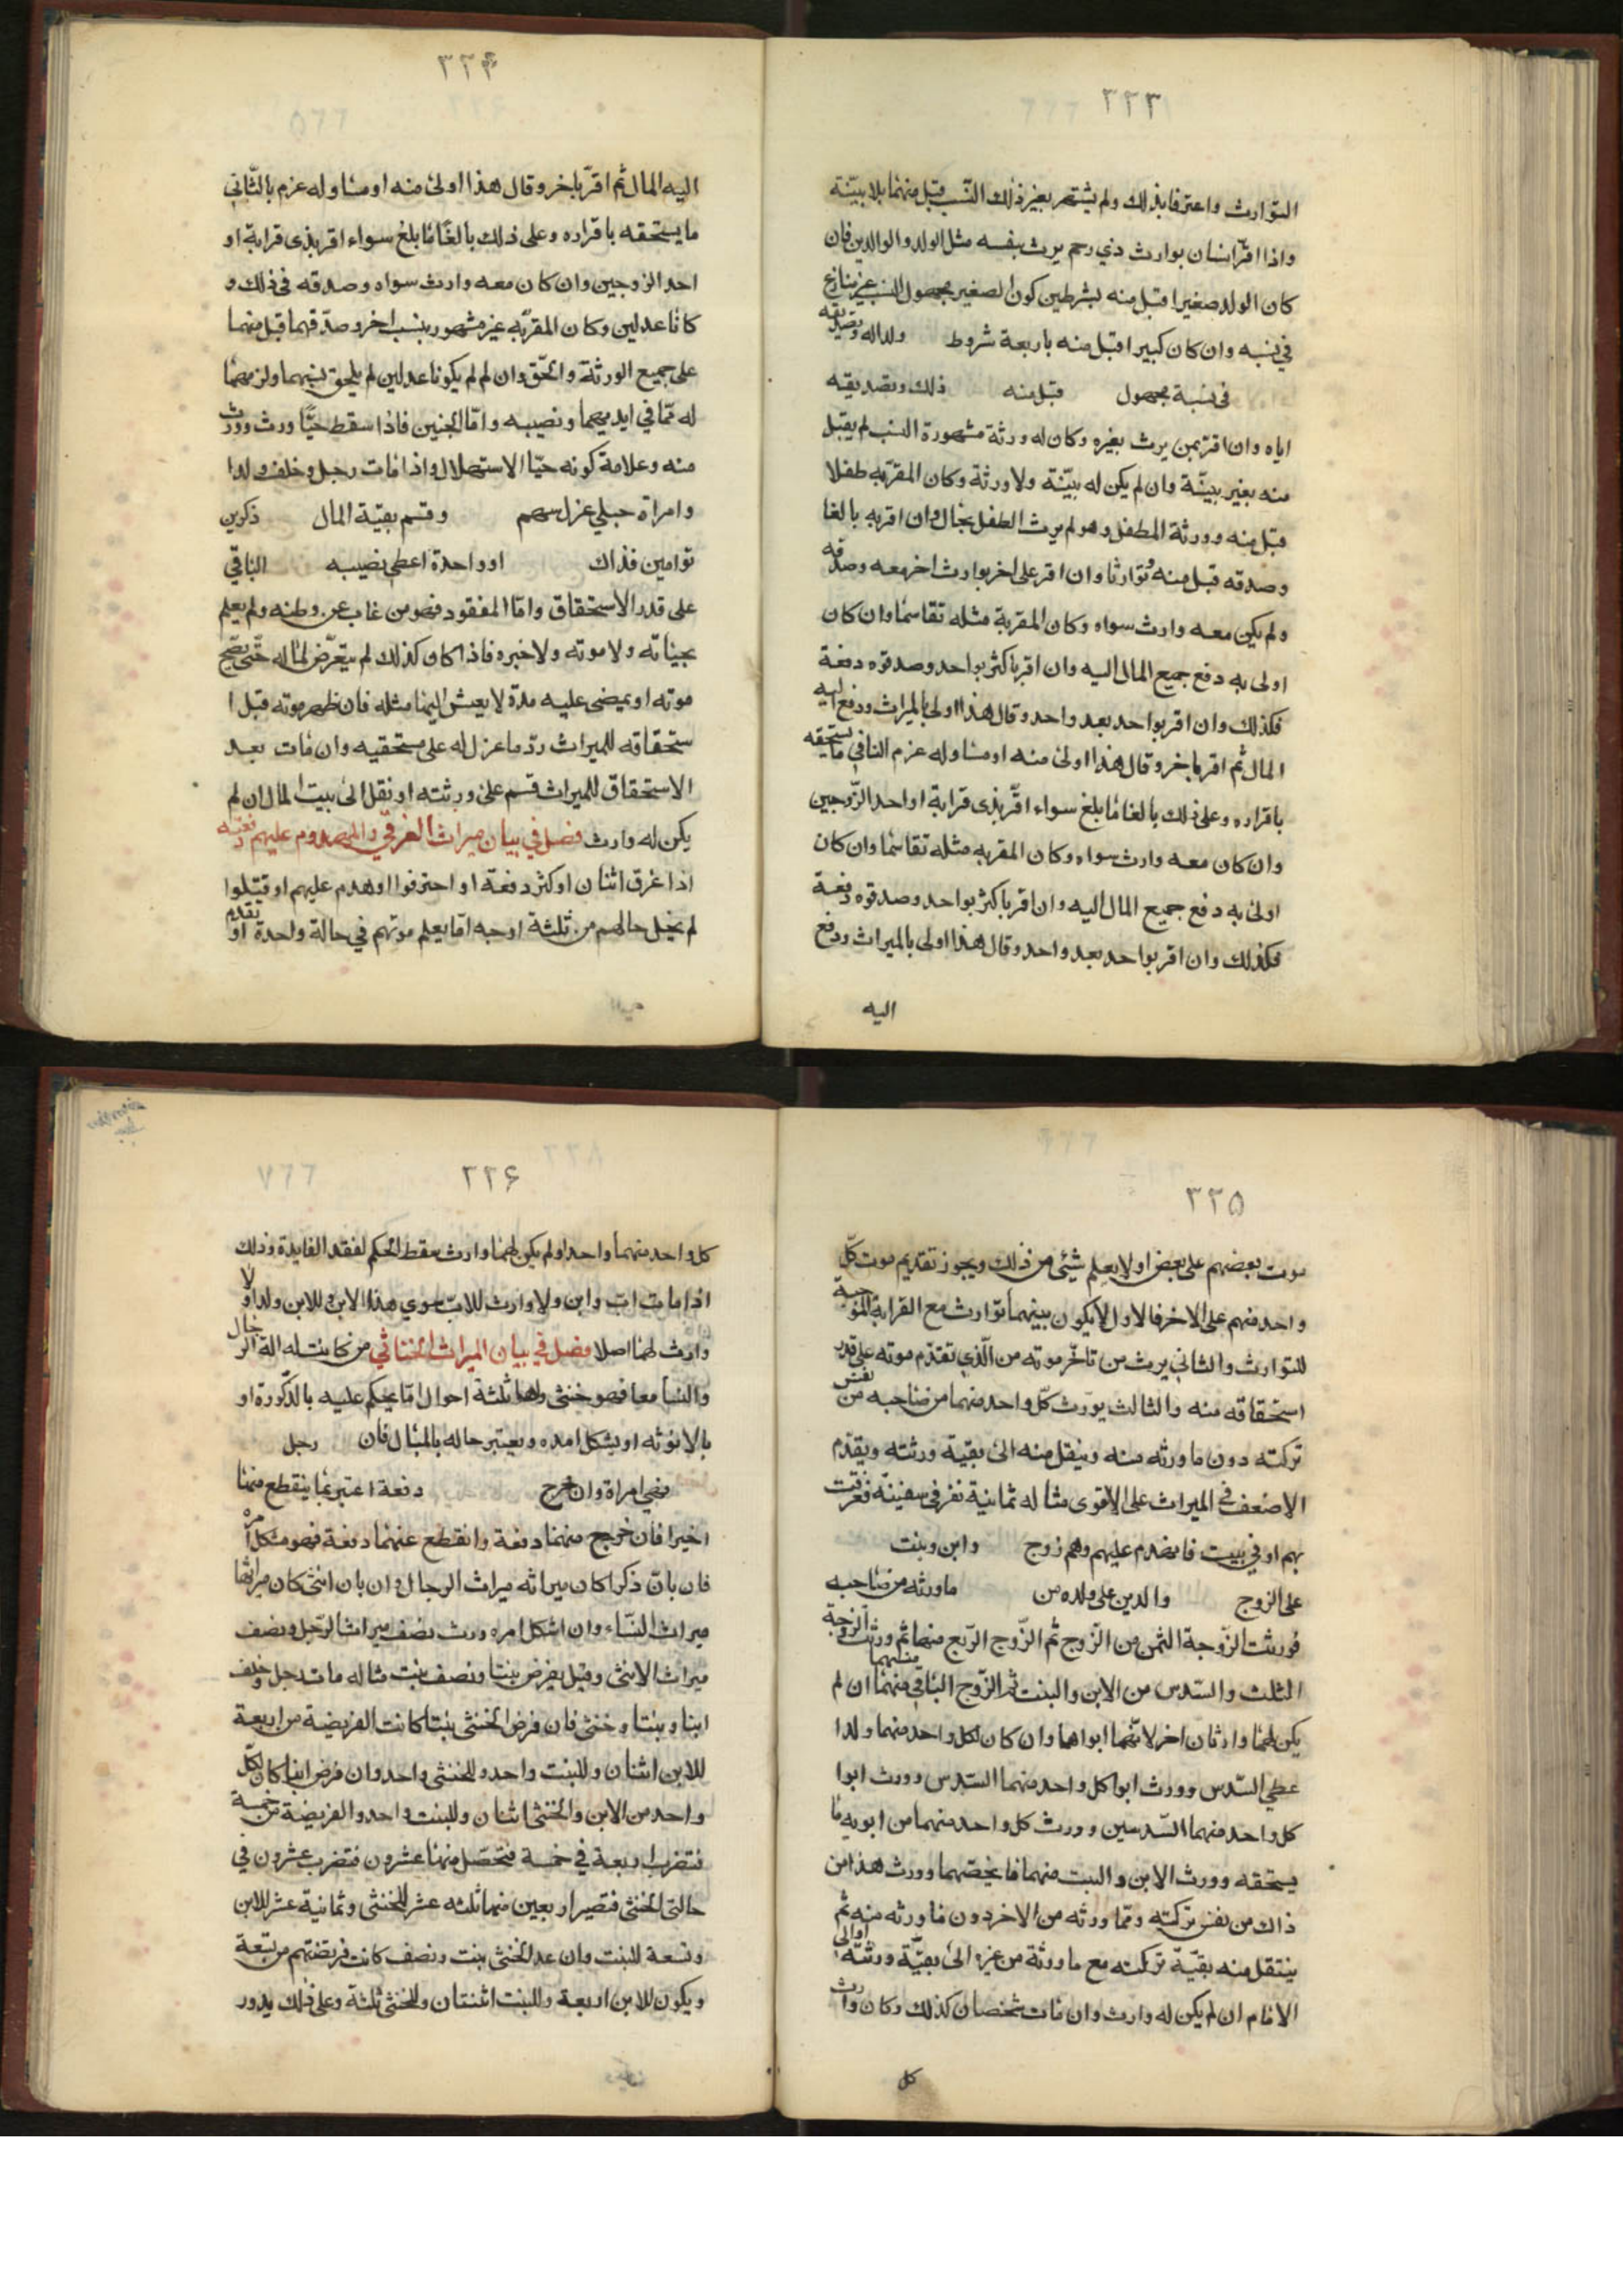 ٣٢٣
التوارث واعترفا بذلك ولم يشتهر بغير ذلك النسب قبل منهما بلا بيّنة
واذا اقرّ انسان بوارث ذي رحم يرث بنفسه مثل الولد والوالدين فان
كان الولد صغيرا قبل منه بشرطين كون الصغير مجهول النسب غير منازع
في نسبه وان كان كبيرا قبل منه باربعة شروط ولداله وتصديقه
في نسبة مجهول قبل منه ذلك وتصديقه
اياه وان اقر بمن يرث بغيره وكان له ورثة مشهورة النسب لم يقبل
منه بغير بيّنة وان لم يكن له بيّنة ولا ورثة وكان المقرّبه طفلا
قبل منه وورثة الطفل وهو لم يرث الطفل بحال وان اقربه بالغا
وصدقه قبل منه وتوارثا وان اقر على اخر بوارث اخر معه وصدقه
ولم يكن معه وارث سواه وكان المقربة مثله تقاسما وان كان
اولى به دفع جميع المال اليه وان اقر باكثر بواحد وصدقوه دفعة
فكذلك وان اقر بواحد بعد واحد وقال هذا اولى بالميراث ودفع اليه
المال ثم اقر باخر وقال هذا اولى منه او مساو له غرم الثاني ما يستحقه
باقراره وعلى ذلك بالغا ما بلغ سواء اقرّ بذى قرابة او احد الزّوجين
وان كان معه وارث سواه وكان المقربه مثله تقاسما وان كان
اولى به دفع جميع المال اليه وان اقر باكثر بواحد وصدقوه دفعة
فكذلك وان اقر بواحد بعد واحد وقال هذا اولى بالميراث ودفع
اليه
٣٢۴
اليه المال ثم اقرّ باخر وقال هذا اولى منه او مساو له غرم بالثّاني
ما يستحقه باقراره وعلى ذلك بالغا ما بلغ سواء اقر بذى قرابة او
احد الزوجين وان كان معه وارث سواه وصدقه في ذلك و
كانا عدلين وكان المقرّبه غير مشهور بنسب اخر وصدّقهما قبل منهما
على جميع الورثة والحق وان لم لم يكونا عدلين لم يلحق نسبهما ولزمهما
له ممّا في ايديهما ونصيبه وامّا الجنين فاذا سقط حيّا ورث وورث
منه وعلامة كونه حيّا الاستهلال واذا مات رجل وخلف ولدا
وامراة حبلى عزل سهم وقسم بقيّة المال ذكرين
توامين فذاك او واحدة اعطى نصيبه الباقي
على قدر الاستحقاق وامّا المفقود فهو من غاب عن وطنه ولم يعلم
بحياته ولا موته ولا خبره فاذا كان كذلك لم يتعرّض لماله حتّى يصحّ
موته او يمضى عليه مدّة لا يعيش اليها مثله فان ظهر موته قبل ا
ستحقاقه للميراث ردّ ما عزل له على مستحقيه وان مات بعد
الاستحقاق للميراث قسم على ورثته او نقل الى بيت المال ان لم
يكن له وارث فصل في بيان ميراث الغرقى والمهدوم عليهم دفعة
اذا غرق اثنان او كثر دفعة او احترفوا او هدم عليهم او قتلوا
لم يخل حالهم من ثلثة اوجه امّا يعلم موتهم في حالة واحدة او تقدم
٣٢۵
موت بعضهم على بعض او لا يعلم شيئى من ذلك ويجوز تقديم موت كلّ
واحد منهم على الاخر فالاول لا يكون بينهما توارث مع القرابة الموجبة
للتوارث والثاني يرث من تاخّر موته من الّذي تقدّم موته على قدر
استحقاقه منه والثالث يورث كلّ واحد منهما من صاحبه من نفس
تركته دون ما ورثه منه وينقل منه الى بقيّة ورثته ويقدّم
الاضعف في الميراث على الاقوى مثاله ثمانية نفر في سفينة فغرقت
بهم او في بيت فانهدم عليهم وهم زوج وابن وبنت
على الزوج والدين على ولده من ماورثه من صاحبه
فورثت الزّوجة الثمن من الزّوج ثم الزّوج الرّبع منها ثم ورثت الزوجة
الثلث والسّدس من الابن والبنت ثم الزّوج الباقي منهما ان لم
يكن لهما وارثان اخر لانّهما ابواهما وان كان لكل واحد منهما ولدا
عطي السّدس وورث ابوا كل واحد منهما السّدس وورث ابوا
كل واحد منهما السّدسين وورث كل واحد منهما من ابويه ما
يستحقه وورث الابن والبنت منهما ما يخصّهما وورث هذا من
ذاك من نفس تركته وممّا ورثه من الاخر دون ما ورثه منه ثم
ينتقل منه بقيّة تركته مع ما ورثة من غيره الى بقيّة ورثته او الى
الامام ان لم يكن له وارث وان مات شخصان كذلك وكان وارث
كل
٣٢۶
كل واحد منهما واحدا ولم يكن لهما وارث سقط الحكم لفقد الفايدة وذلك
اذا مات اب وابن ولا وارث للابّ سوي هذا الابن وللابن ولد او لا
وارث لهما اصلا فصل في بيان الميراث الخناثي من كانت له الة الرجال
والنسا معا فهو خنثى ولها ثلثة احوال امّا يحكم عليه بالذّكورة او
بالانوثه او يشكل امده ويعتبر حاله بالمبال فان رجل
فهي امراة وان خرج دفعة اعتبر بما ينقطع منهما
اخيرا فان خرج منهما دفعة وانقطع عنهما دفعة فهو مشكل امره
فان بانّ ذكرا كان ميراثه ميراث الرجال وان بان انثى كان ميراثها
ميراث النسّاء وان اشكل امره ورث نصف ميراث الرّجل ونصف
ميراث الانثى وقيل يفرض بنتا ونصف بنت مثاله مات رجل وخلف
ابنا وبنتا وخنثى فان فرض الخنثى بنتا كانت الفريضة من اربعة
للابن اثنان وللبنت واحد وللخنثى واحد وان فرض ابنا كان لكلّ
واحد من الابن والخنثى اثنان وللبنت واحد والفريضة من خمسة
فتضرب اربعة في خمسة فتحصّل منها عشرون فتضرب عشرون في
حالتى الخنثى فتصير اربعين منها ثلثه عشر للخنثى وثمانية عشر للابن
وتسعة للبنت وان عد الخنثى بنت ونصف كانت فريضتهم من تسعة
ويكون للابن اربعة وللبنت اثنتان وللخنثى ثلثة وعلى ذلك يدور